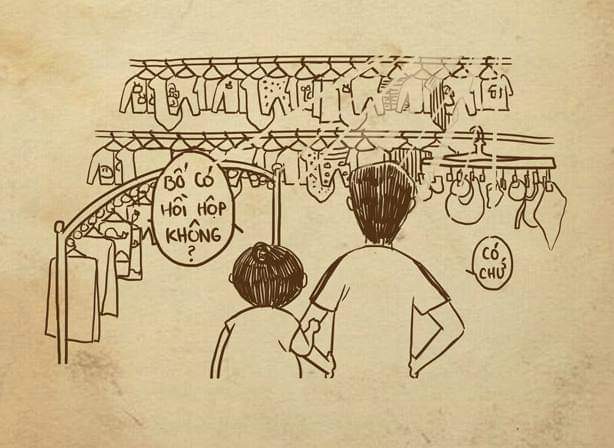 BỐ CÓ
HỒI HỘP
KHÔNG
?
CÓ
CHỨ